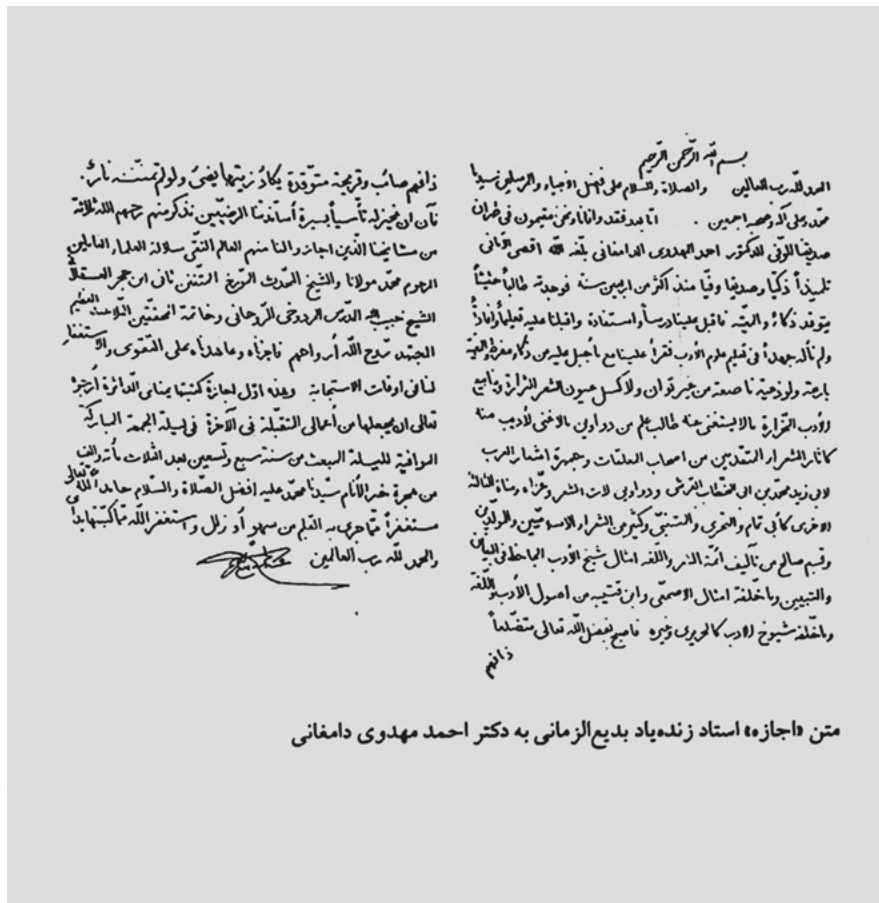 بسم الله الرّحمن الرّحیم
الحمد للّه رب العالمین والصلاة والسلام علی افضل الانبیاء والمرسلین سیدنا
محمّد وعلی آله وصحبه اجمعین . اتا بعد فقد وافانا ونحن مقیمون فی طهران
صدیقنا الوفّی الدکتور احمد المهدوی الدامغانی بلّغه اللّه اقصی الأمانی
تلمیذاً ذکیّا وصدیقا وفیّا منذ اکثر من اربعین سنة فوجدته طالباً حثیثاً
یتوقد ذکاءً والمیّته فاقبل علینا درساً واستفادة واقبلنا علیه تعلیماً وافادةً
ولم نأله جهداً فی تعلیم علوم الأدب فقرأ علینا مع ما جبل علیه من ذکاء مفرط والمعیّة
بارعة ولوذعیّة ناصعة من غیر توان ولا کسل عیون الشعر الثرارة وینابیع
الأدب الغزارة مالا یستغنی عنه طالب علم من دواوین مالا غنی لأدیب عنه
کآثار الشعراء المتقدمین من اصحاب المعلقات وجمهرة اشعار العرب
لابی زید محمّد بن ابی الخطاب القرشی ودواوین لات الشعر وعزّاه ومناة الثالثة
الاخری کأبی تمام والبحتری والمتنبّی وکثیر من الشعراء الاسلامیّین والمولّدین
وقسم صالح من تآلیف ائمّة النثر واللغة امثال شیخ الأدب الجاحظ فی البیان
والتبیین وما خلّفه امثال الاصمعّی وابن قتیبه من اصول الأدب واللّغة
وما خلّفه شیوخ الادب کالحریری وغیره فاصبح بفضل اللّه تعالی متضلّعاً
ذا فهم
ذا فهم صائب وقریحة متوّقدة یکاد زیتها یضیئ ولو لم تمسسه نارٌ.
فآن ان نجیز له تأسیاً بسیرة أساتذتنا الرضیّین نذکر منهم رحمهم اللّه ثلاثة
من مشایخنا الّذین اجازوا لنا منهم العالم التقّی سلالة العلماء العاملین
المرحوم محمّد مولانا والشیخ المحدث المورّخ المتفنن ثانی ابن حجر العسقلانّی
الشیخ حبیب اللّه المدّرس الردوخی الرّوحانی وخاتمة المحققین العلّامة العظیم
المجتهد روّح اللّه أرواحهم فاجزناه وعاهدناه علی التقوی والاستغفار
لنا فی اوقات الاستجابة وهذا اوّل اجازة کتبتها بمنانی الدائرة أرجو
تعالی ان یجعلها من أعمالی المتقبّلة فی الآخرة فی لیلة الجمعة المبارکة
الموافیة للیلة المبعث من سنة سبع وتسعین بعد الثلاث مأة والف
من هجرة خیر الأنام سیّدنا محمّد علیه افضل الصّلاة والسّلام حامداً للّه تعالی
مستغفراً ممّا جری به القلم من سهوٍ أو زلل واستغفر اللّه ممّا کتبتها بدأ
والحمد للّه رب العالمین
متن «اجازه» استاد زنده‌یاد بدیع‌الزمانی به دکتر احمد مهدوی دامغانی